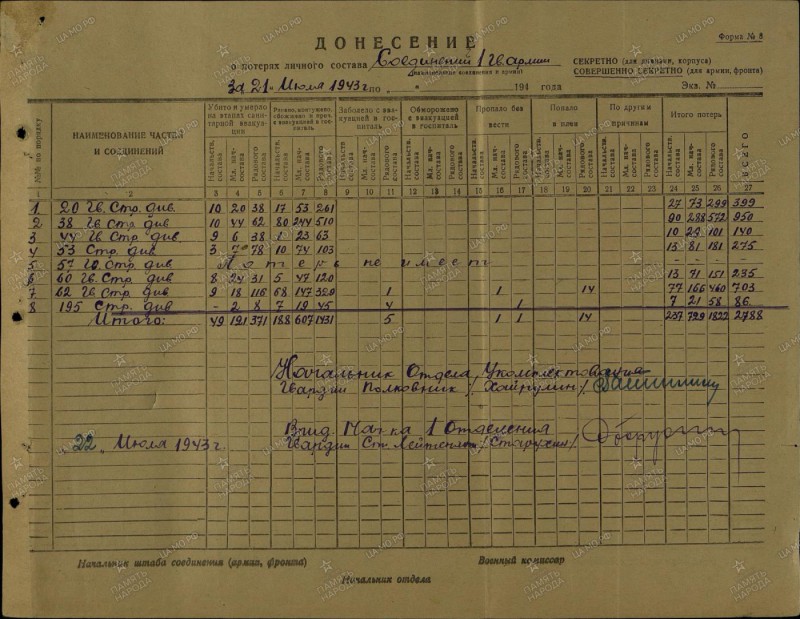 Форма № 8
ДОНЕСЕНИЕ
о потерях личного состава Соединений 1 Гв армии
(наименование соединения и армии)
СЕКРЕТНО (для дивизии, корпуса)
СОВЕРШЕННО СЕКРЕТНО (для армии, фронта)
За 21 Июля 1943 г по „ “ 194 года Экз. №
№№ по порядку
НАИМЕНОВАНИЕ ЧАСТЕЙ И СОЕДИНЕНИЙ
Убито и умерло на этапах санитарной эвакуации
Ранено, контужено, обожжено с эвакуацией в госпиталь
Заболело с эвакуацией в госпиталь
Обморожено с эвакуацией в госпиталь
Пропало без вести
Попало в плен
По другим причинам
Итого потерь
ВСЕГО
Начальств. состава Мл. нач. состава Рядового состава
2 3 4 5 6 7 8 9 10 11 12 13 14 15 16 17 18 19 20 21 22 23 24 25 26 27
1 20 Гв. Стр. див. 10 20 38 17 53 261 27 73 299 399
2 38 Гв. Стр. див. 10 44 62 80 244 510 90 288 572 950
3 44 Гв. Стр. див 9 6 38 1 23 63 10 29 101 140
4 53 Стр. див 3 7 78 10 74 103 13 81 181 275
5 57 Гв. Стр. див Потерь не имеет - - - -
6 60 Гв. Стр. див 8 24 31 5 47 120 13 71 151 235
7 62 Гв. Стр. див 9 18 116 68 147 1 1 14 77 166 460 703
8 195 Стр. див - 2 8 7 19 45 4 1 7 21 58 86
Итого: 49 121 371 188 607 1431 5 1 1 14 237 729 1822 2788
Начальник Отдела Укомплектования
Гвардии Полковник /Хайрулин/
Врид. Нач-ка 1 Отделения
Гвардии Ст. Лейтенант /Старухин/
„22“ Июля 1943 г.
Начальник штаба соединения (армии, фронта)
Военный комиссар
Начальник отдела